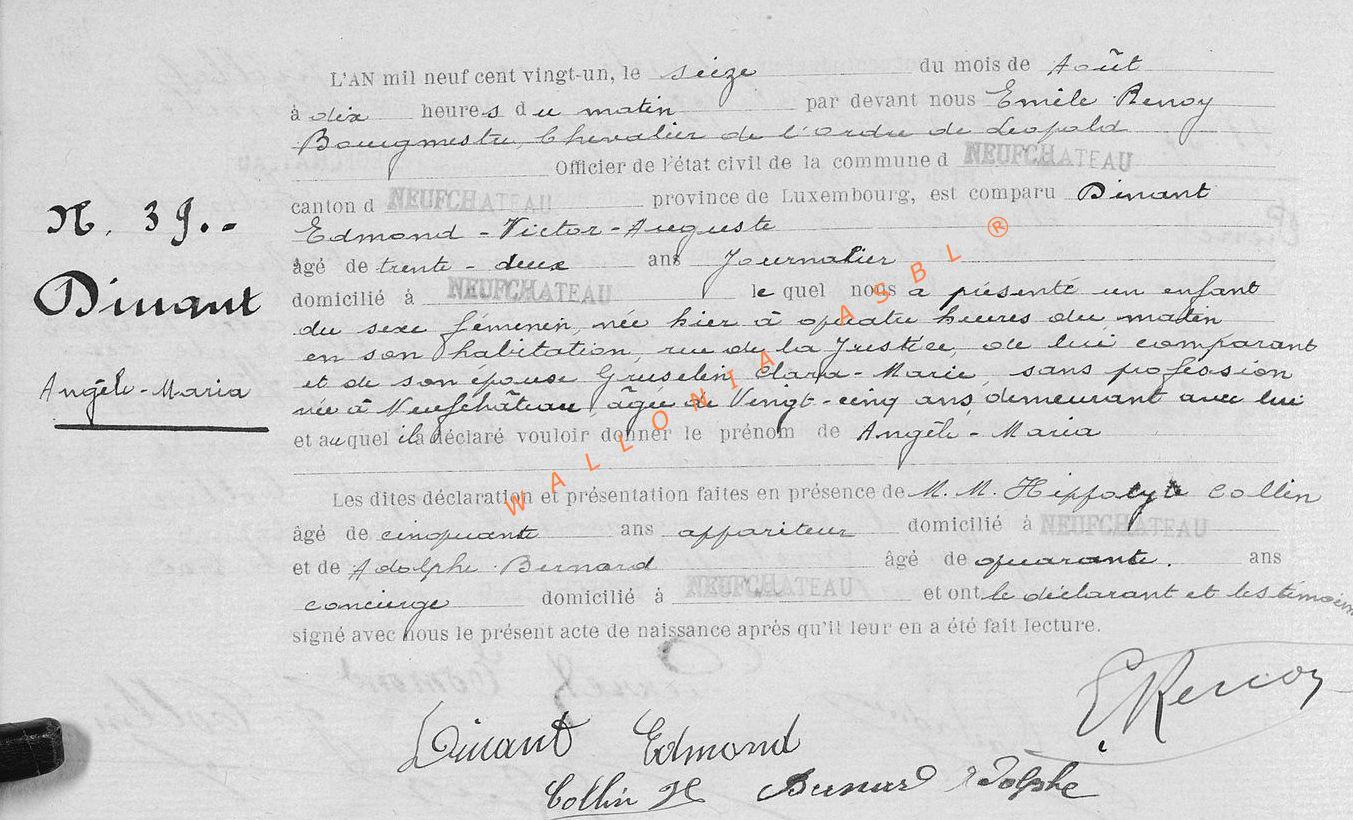 L'AN mil neuf cent vingt-un, le seize du mois de Août
à dix heures du matin par devant nous Emile Renoy
Bourgmestre, Chevalier de l'ordre de Léopold
Officier de l'état civil de la commune d NEUFCHATEAU
canton d NEUFCHATEAU province de Luxembourg, est comparu Dinant
Edmond - Victor - Auguste
âgé de trente - deux ans Journalier
domicilié à NEUFCHATEAU lequel nous a présenté un enfant
du sexe féminin, née hier à quatre heures du matin
en son habitation, rue de la Justice, de lui comparant
et de son épouse Gruselin, Clara - Marie, sans profession
née à Neufchâteau, âgée de Vingt-cinq ans, demeurant avec lui
et auquel il a déclaré vouloir donner le prénom de Angèle - Maria
Les dites déclaration et présentation faites en présence de M. M. Hippolyte Collin
âgé de cinquante ans appariteur domicilié à NEUFCHATEAU
et de Adolphe Bernard âgé de quarante. ans
concierge domicilié à NEUFCHATEAU et ont le déclarant et les témoins
signé avec nous le présent acte de naissance après qu'il leur en a été fait lecture.
N. 39.-
Dinant
Angèle - Maria
E Renoy
Dinant Edmond
Collin H Bernard Adolphe
WALLONIA ASBL ®